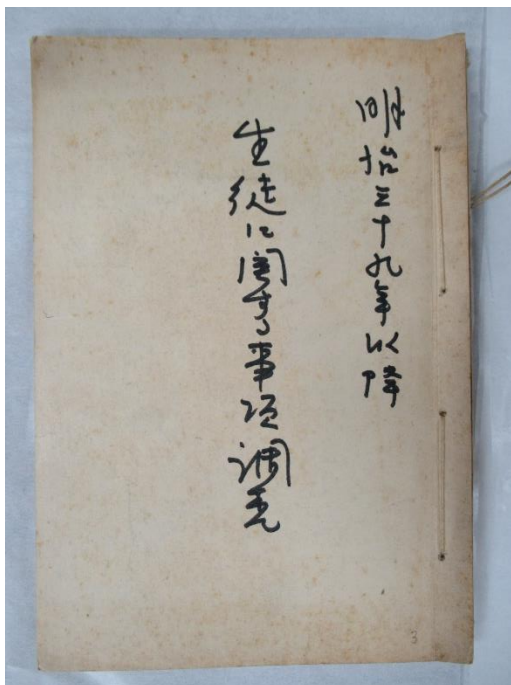 明治三十九年以降
生徒に関する事項調査
3